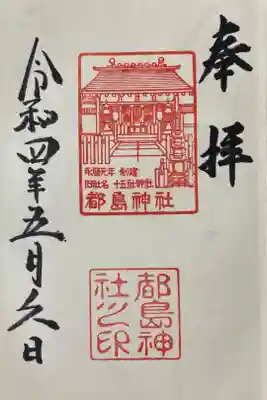 奉拝
永暦元年 創建
旧社名 十五社神社
都島神社
都島神
社之印
令和四年五月九日